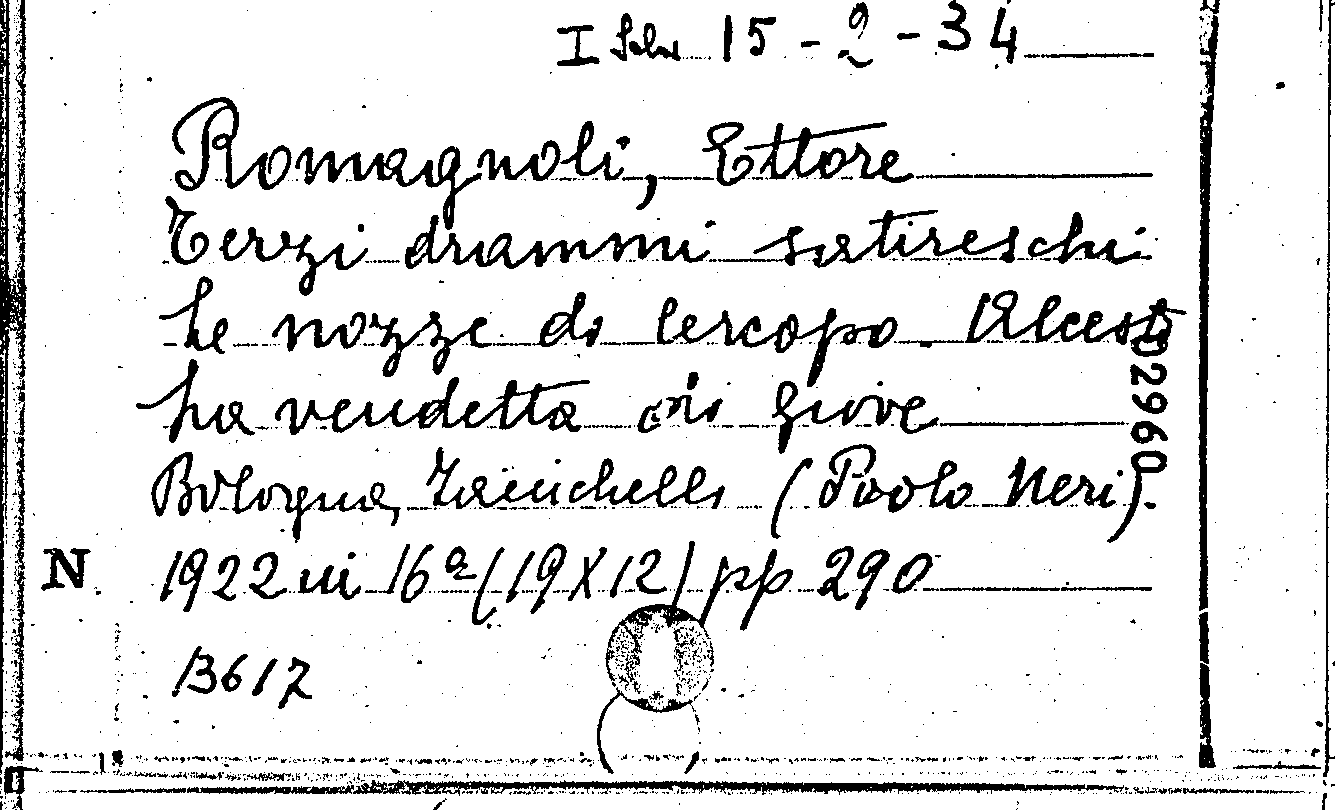 I Salv 15-2-34
Romagnoli, Ettore
Terzi drammi satireschi
Le nozze di Cercopo. Alcesti
La vendetta di Giove
Bologna, Zanichelli (Paolo Neri).
1922 in 16º (19X12) pp 290
N
B617
02960